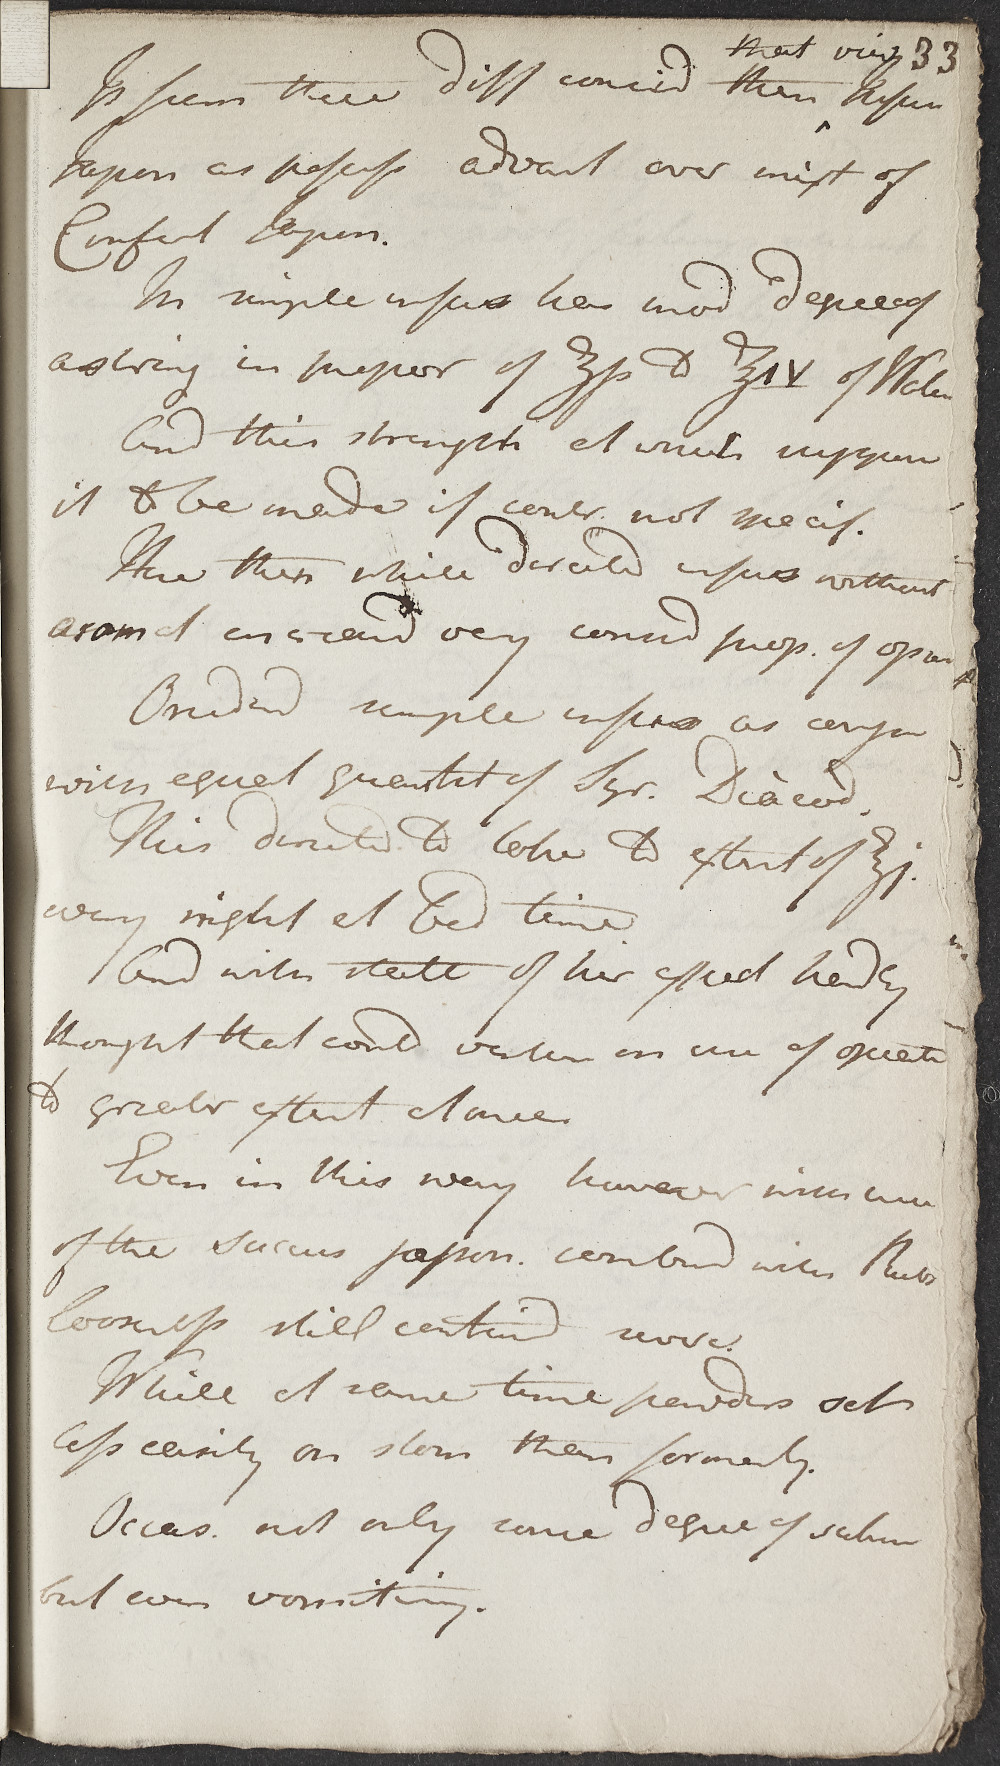 that view 33
In some these diff consid then Infus
Japon as possess advant over mixt of
Confect Japon.
In simple infus has mod degree of
astring in propor of ʒſs to ℥IV of Water
And this strength at which suppose
it to be made if contr. not specif.
Here then while directed infus without
aromat increased very consid prop. of opium
Ordered simple infus as conjoin
with equal quantit of Syr. Diacod.
This directed to take to extent of ℥j.
every night at bed time
And with state of her affect hardly
thought that could venture on use of opiate
to greater extent at once
Even in this way however with use
of the Succus Japon. combined with Rub
looseness still contind more.
While at same time powders sets
less easily on stom than formerly.
Occas. not only some degree of
but even vomiting.